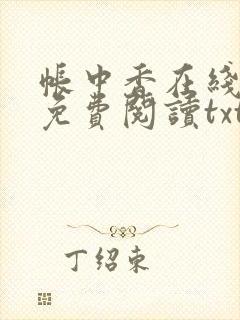 帳中香在綫
免費閱讀txt
丁紹東